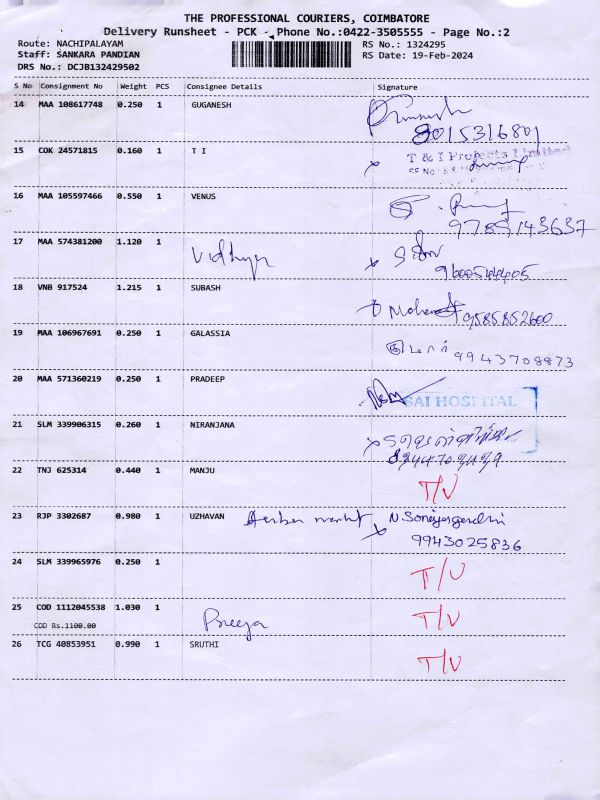 THE PROFESSIONAL COURIERS, COIMBATORE
Delivery Runsheet - PCK - Phone No.:0422-3505555 - Page No.:2
Route: NACHIPALAYAM RS No.: 1324295
Staff: SANKARA PANDIAN RS Date: 19-Feb-2024
DRS No.: DCJB132429502
S No Consignment No Weight PCS Consignee Details Signature
14 MAA 108617748 0.250 1 GUGANESH
8015316801
15 COK 24571815 0.160 1 T I T & I Projects Limited
16 MAA 105597466 0.550 1 VENUS
9789143637
17 MAA 574381200 1.120 1 Vidhya
9600514405
18 VNB 917524 1.215 1 SUBASH
9585852600
19 MAA 106967691 0.250 1 GALASSIA
9943708873
20 MAA 571360219 0.250 1 PRADEEP
SAI HOSPITAL
21 SLM 339906315 0.260 1 NIRANJANA
22 TNJ 625314 0.440 1 MANJU T/V
23 RJP 3302687 0.980 1 UZHAVAN
9943025836
24 SLM 339965976 0.250 1 T/V
25 COD 1112045538 1.030 1 Preeja T/V
COD Rs.1100.00
26 TCG 40853951 0.990 1 SRUTHI T/V